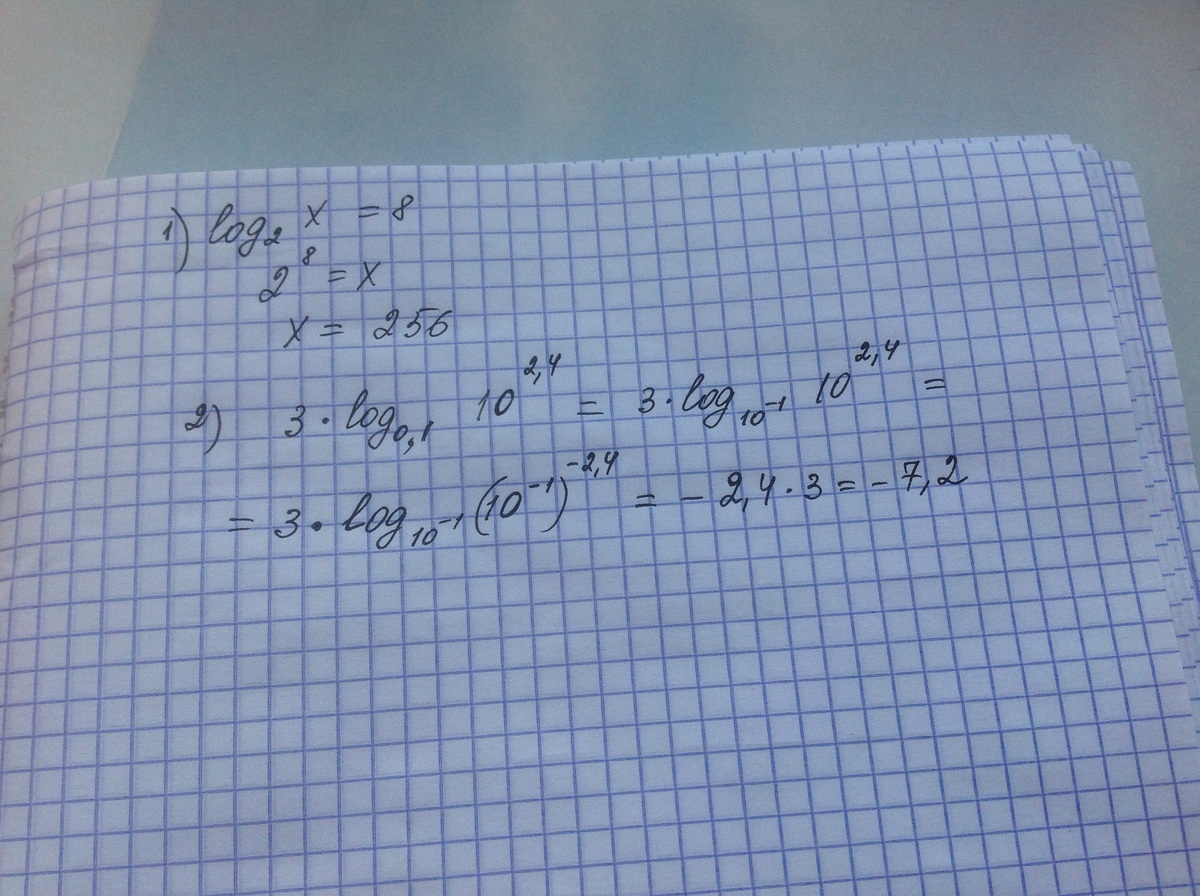 1) log₂ x = 8
2⁸ = x
x = 256
2) 3 · log₀,₁ 10^2,4 = 3 · log₁₀⁻¹ 10^2,4 =
= 3 · log₁₀⁻¹ (10⁻¹)^-2,4 = - 2,4 · 3 = - 7,2